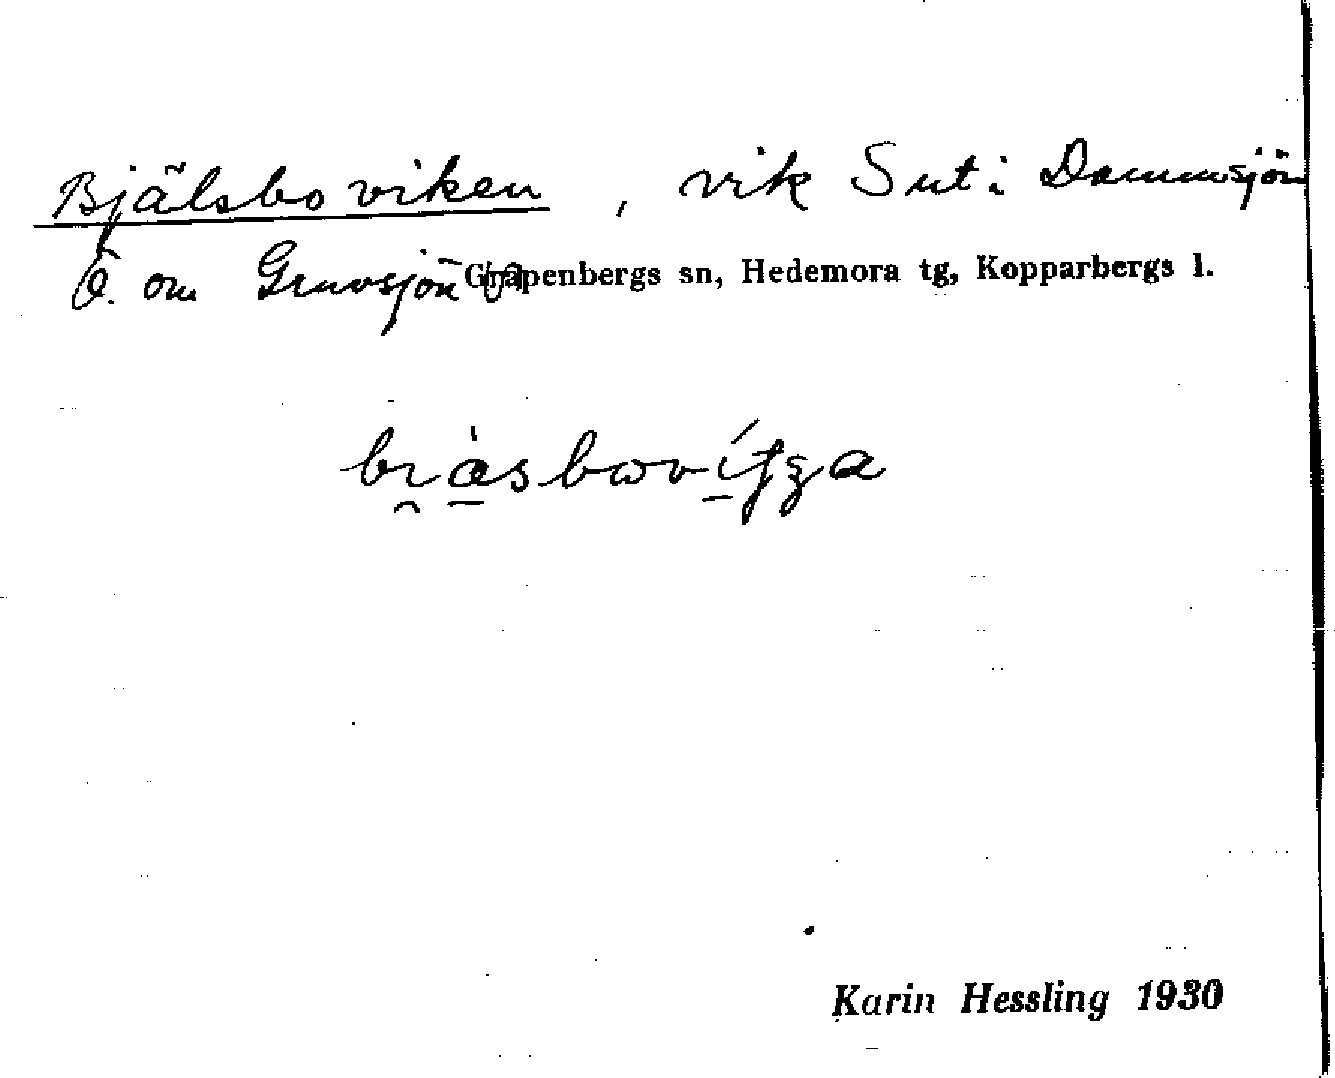 Bjälsboviken, vik S ut i Dammsjön
Ö. om Gruvsjön Garpenbergs sn, Hedemora tg, Kopparbergs l.
Karin Hessling 1930